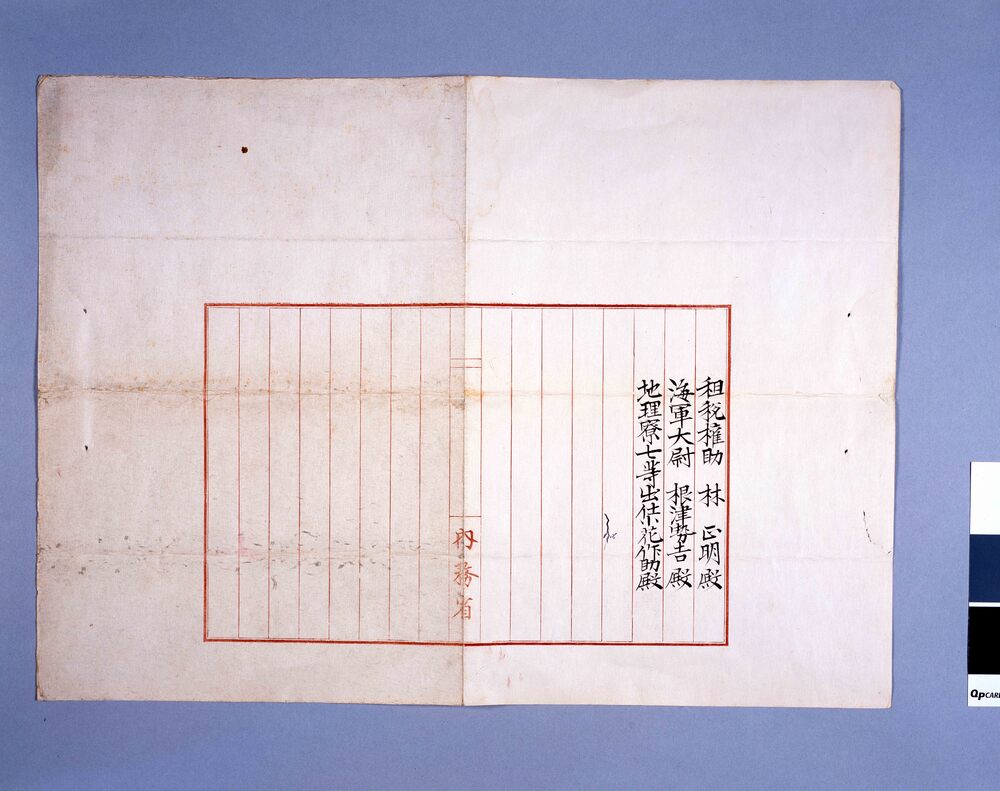 租税権助 林 正明殿
海軍大尉 根津勢吉殿
地理寮七等出仕小花作助殿
内務省
QPCARD